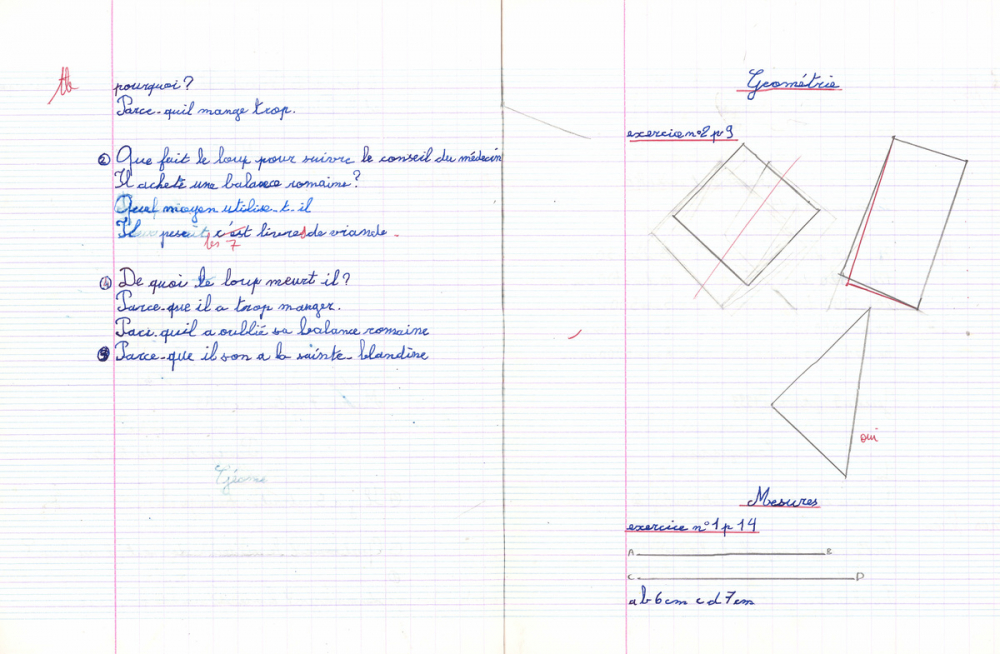 tb
pourquoi?
Parce-qu'il mange trop.
② Que fait le loup pour suivre le conseil du médecin
Il achete une balance romaine?
Quel moyen utilise-t-il
Il pesait c'est livres de viande.
les 7
④ De quoi le loup meurt il?
Parce-que il a trop manger.
Parce-qu'il a oublié sa balance romaine
⑤ Parce-que il son a la sainte blandine
Géome
Geométrie
exercice n°2 p 9
oui
Mesures
exercice n°1 p 14
A B
C D
a b 6 cm c d 7 cm